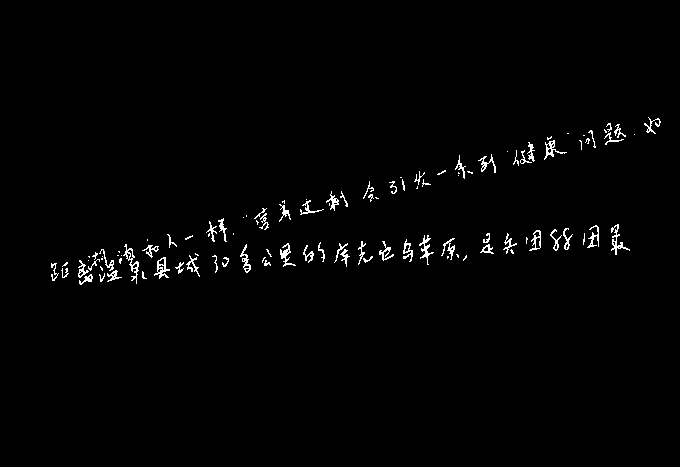 湖泊和人一样,"营养过剩"会引发一系列"健康"问题.如
距离温泉县城30多公里的库克它乌草原,是兵团88团最